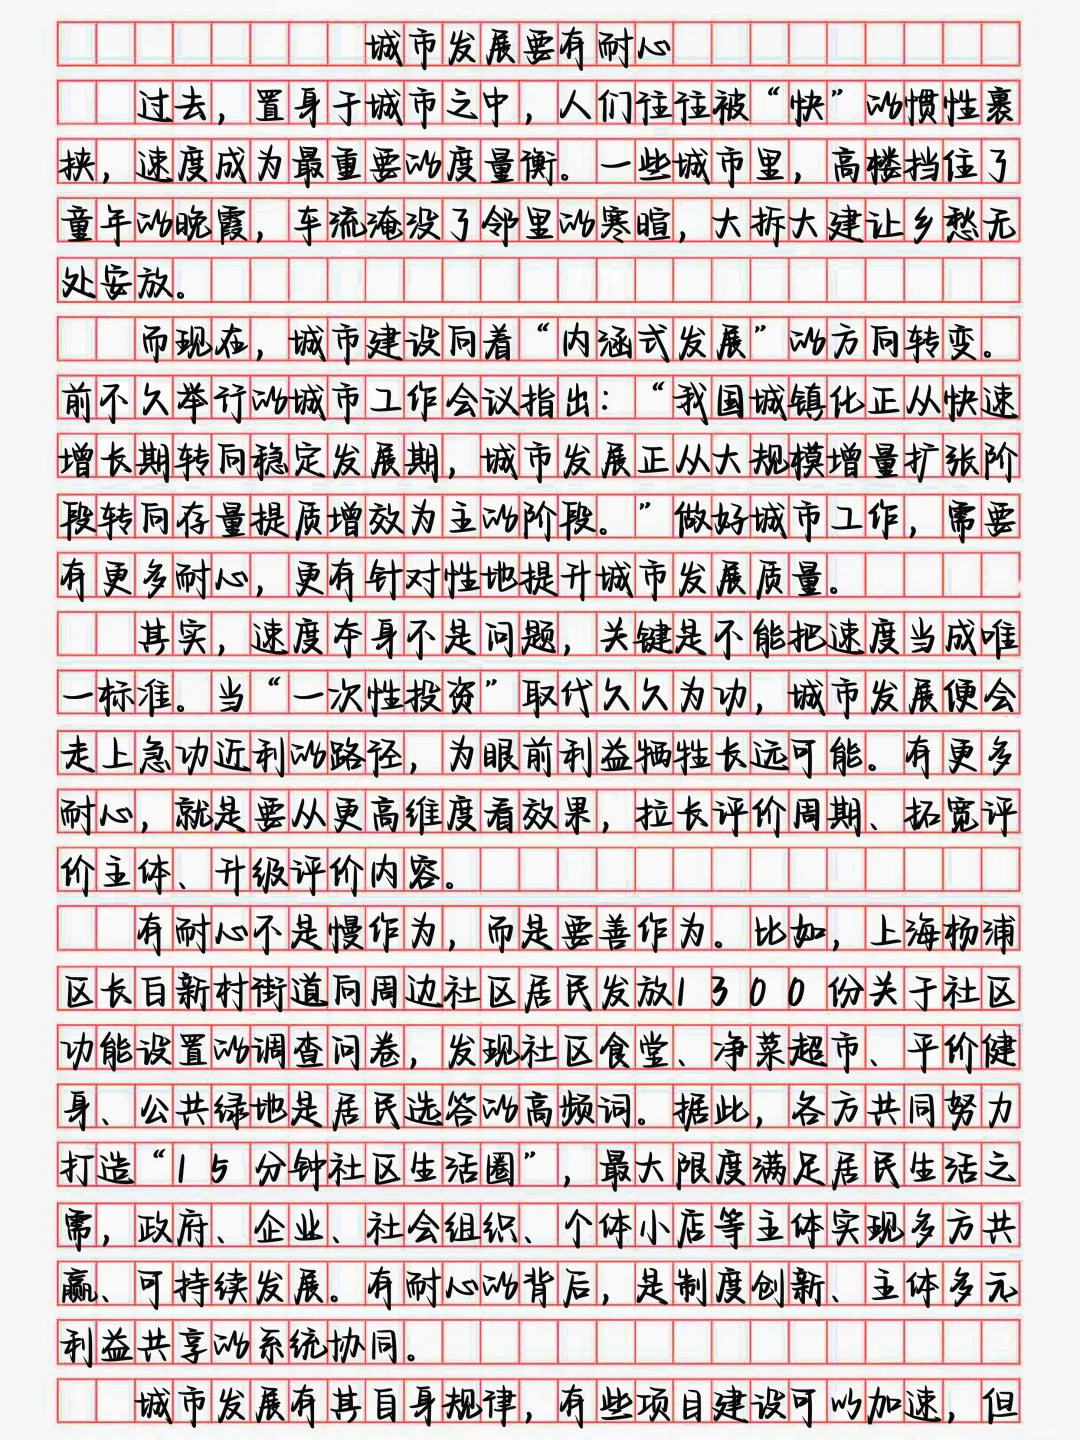 城市发展要有耐心
过去，置身于城市之中，人们往往被“快”的惯性裹
挟，速度成为最重要的度量衡。一些城市里，高楼挡住了
童年的晚霞，车流淹没了邻里的寒暄，大拆大建让乡愁无
处安放。
而现在，城市建设向着“内涵式发展”的方向转变。
前不久举行的城市工作会议指出：“我国城镇化正从快速
增长期转向稳定发展期，城市发展正从大规模增量扩张阶
段转向存量提质增效为主的阶段。”做好城市工作，需要
有更多耐心，更有针对性地提升城市发展质量。
其实，速度本身不是问题，关键是不能把速度当成唯
一标准。当“一次性投资”取代久久为功，城市发展便会
走上急功近利的路径，为眼前利益牺牲长远可能。有更多
耐心，就是要从更高维度看效果，拉长评价周期、拓宽评
价主体、升级评价内容。
有耐心不是慢作为，而是要善作为。比如，上海杨浦
区长白新村街道向周边社区居民发放1300份关于社区
功能设置的调查问卷，发现社区食堂、净菜超市、平价健
身、公共绿地是居民选答的高频词。据此，各方共同努力
打造“15分钟社区生活圈”，最大限度满足居民生活之
需，政府、企业、社会组织、个体小店等主体实现多方共
赢、可持续发展。有耐心的背后，是制度创新、主体多元
利益共享的系统协同。
城市发展有其自身规律，有些项目建设可以加速，但